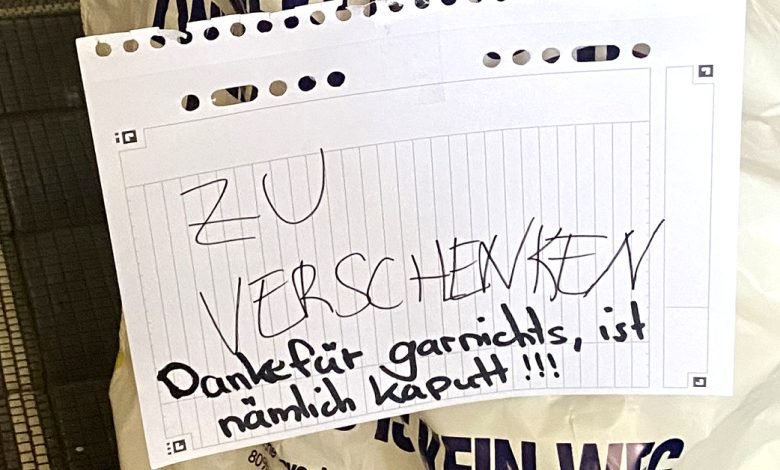 ZU
VERSCHENKEN
Danke für garnichts, ist
nämlich kaputt !!!
KEIN WEG
80%